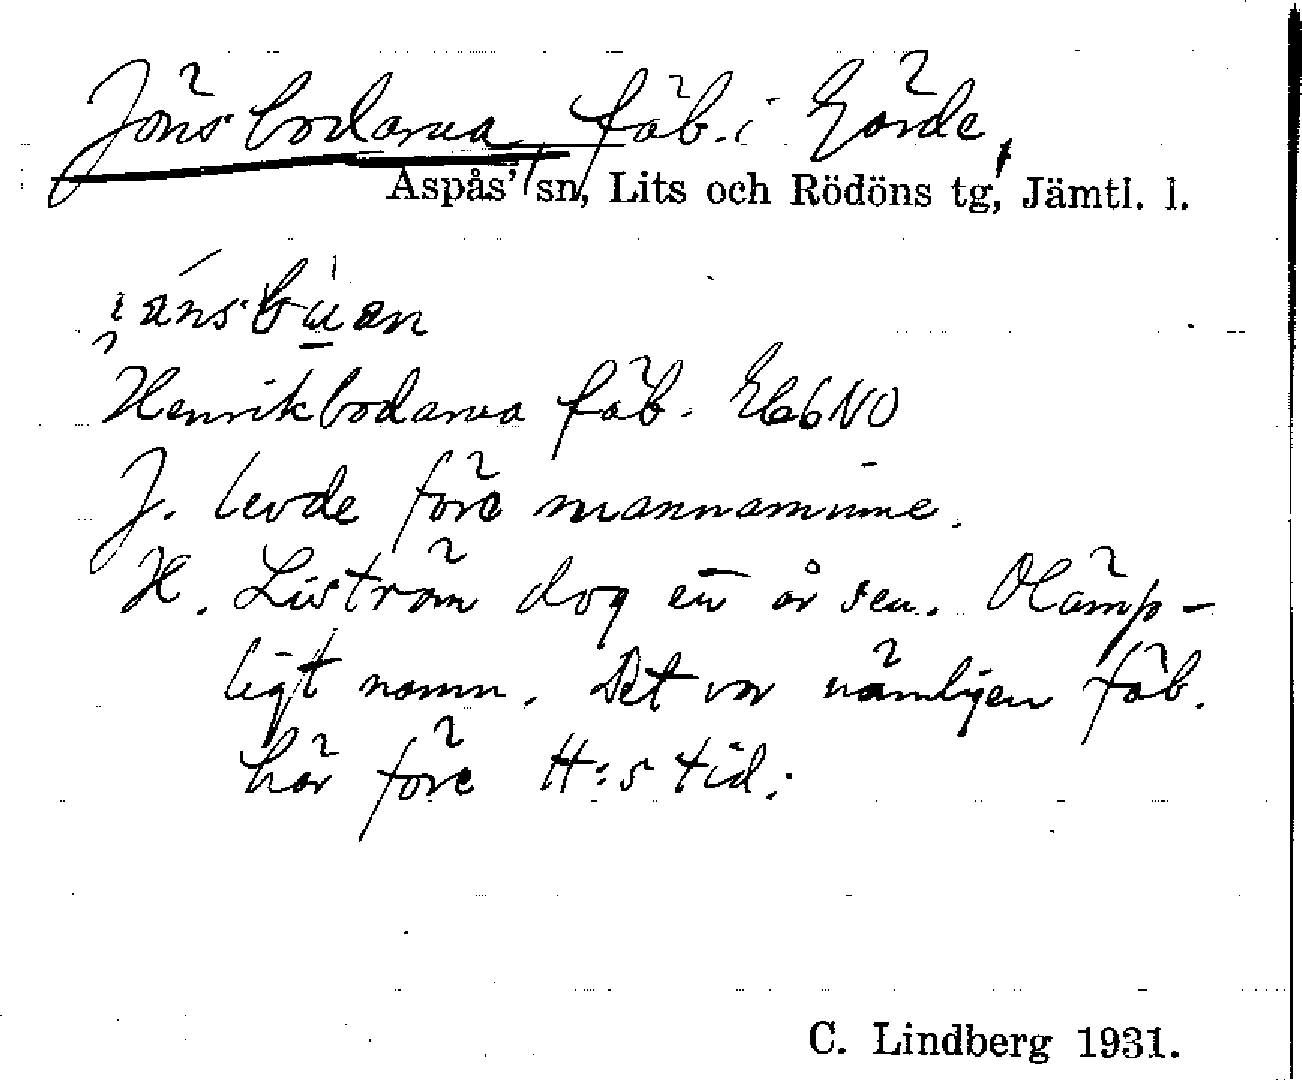 Jönsbodarna fäb. i Görde,
Aspås' sn, Lits och Rödöns tg, Jämtl. l.
Henrikbodarna fäb. Eb6NO
J. levde före mannaminne.
H. Liström dog en år sen. Olämp-
ligt namn. Det var nämligen fäb.
här före H:s tid.
C. Lindberg 1931.